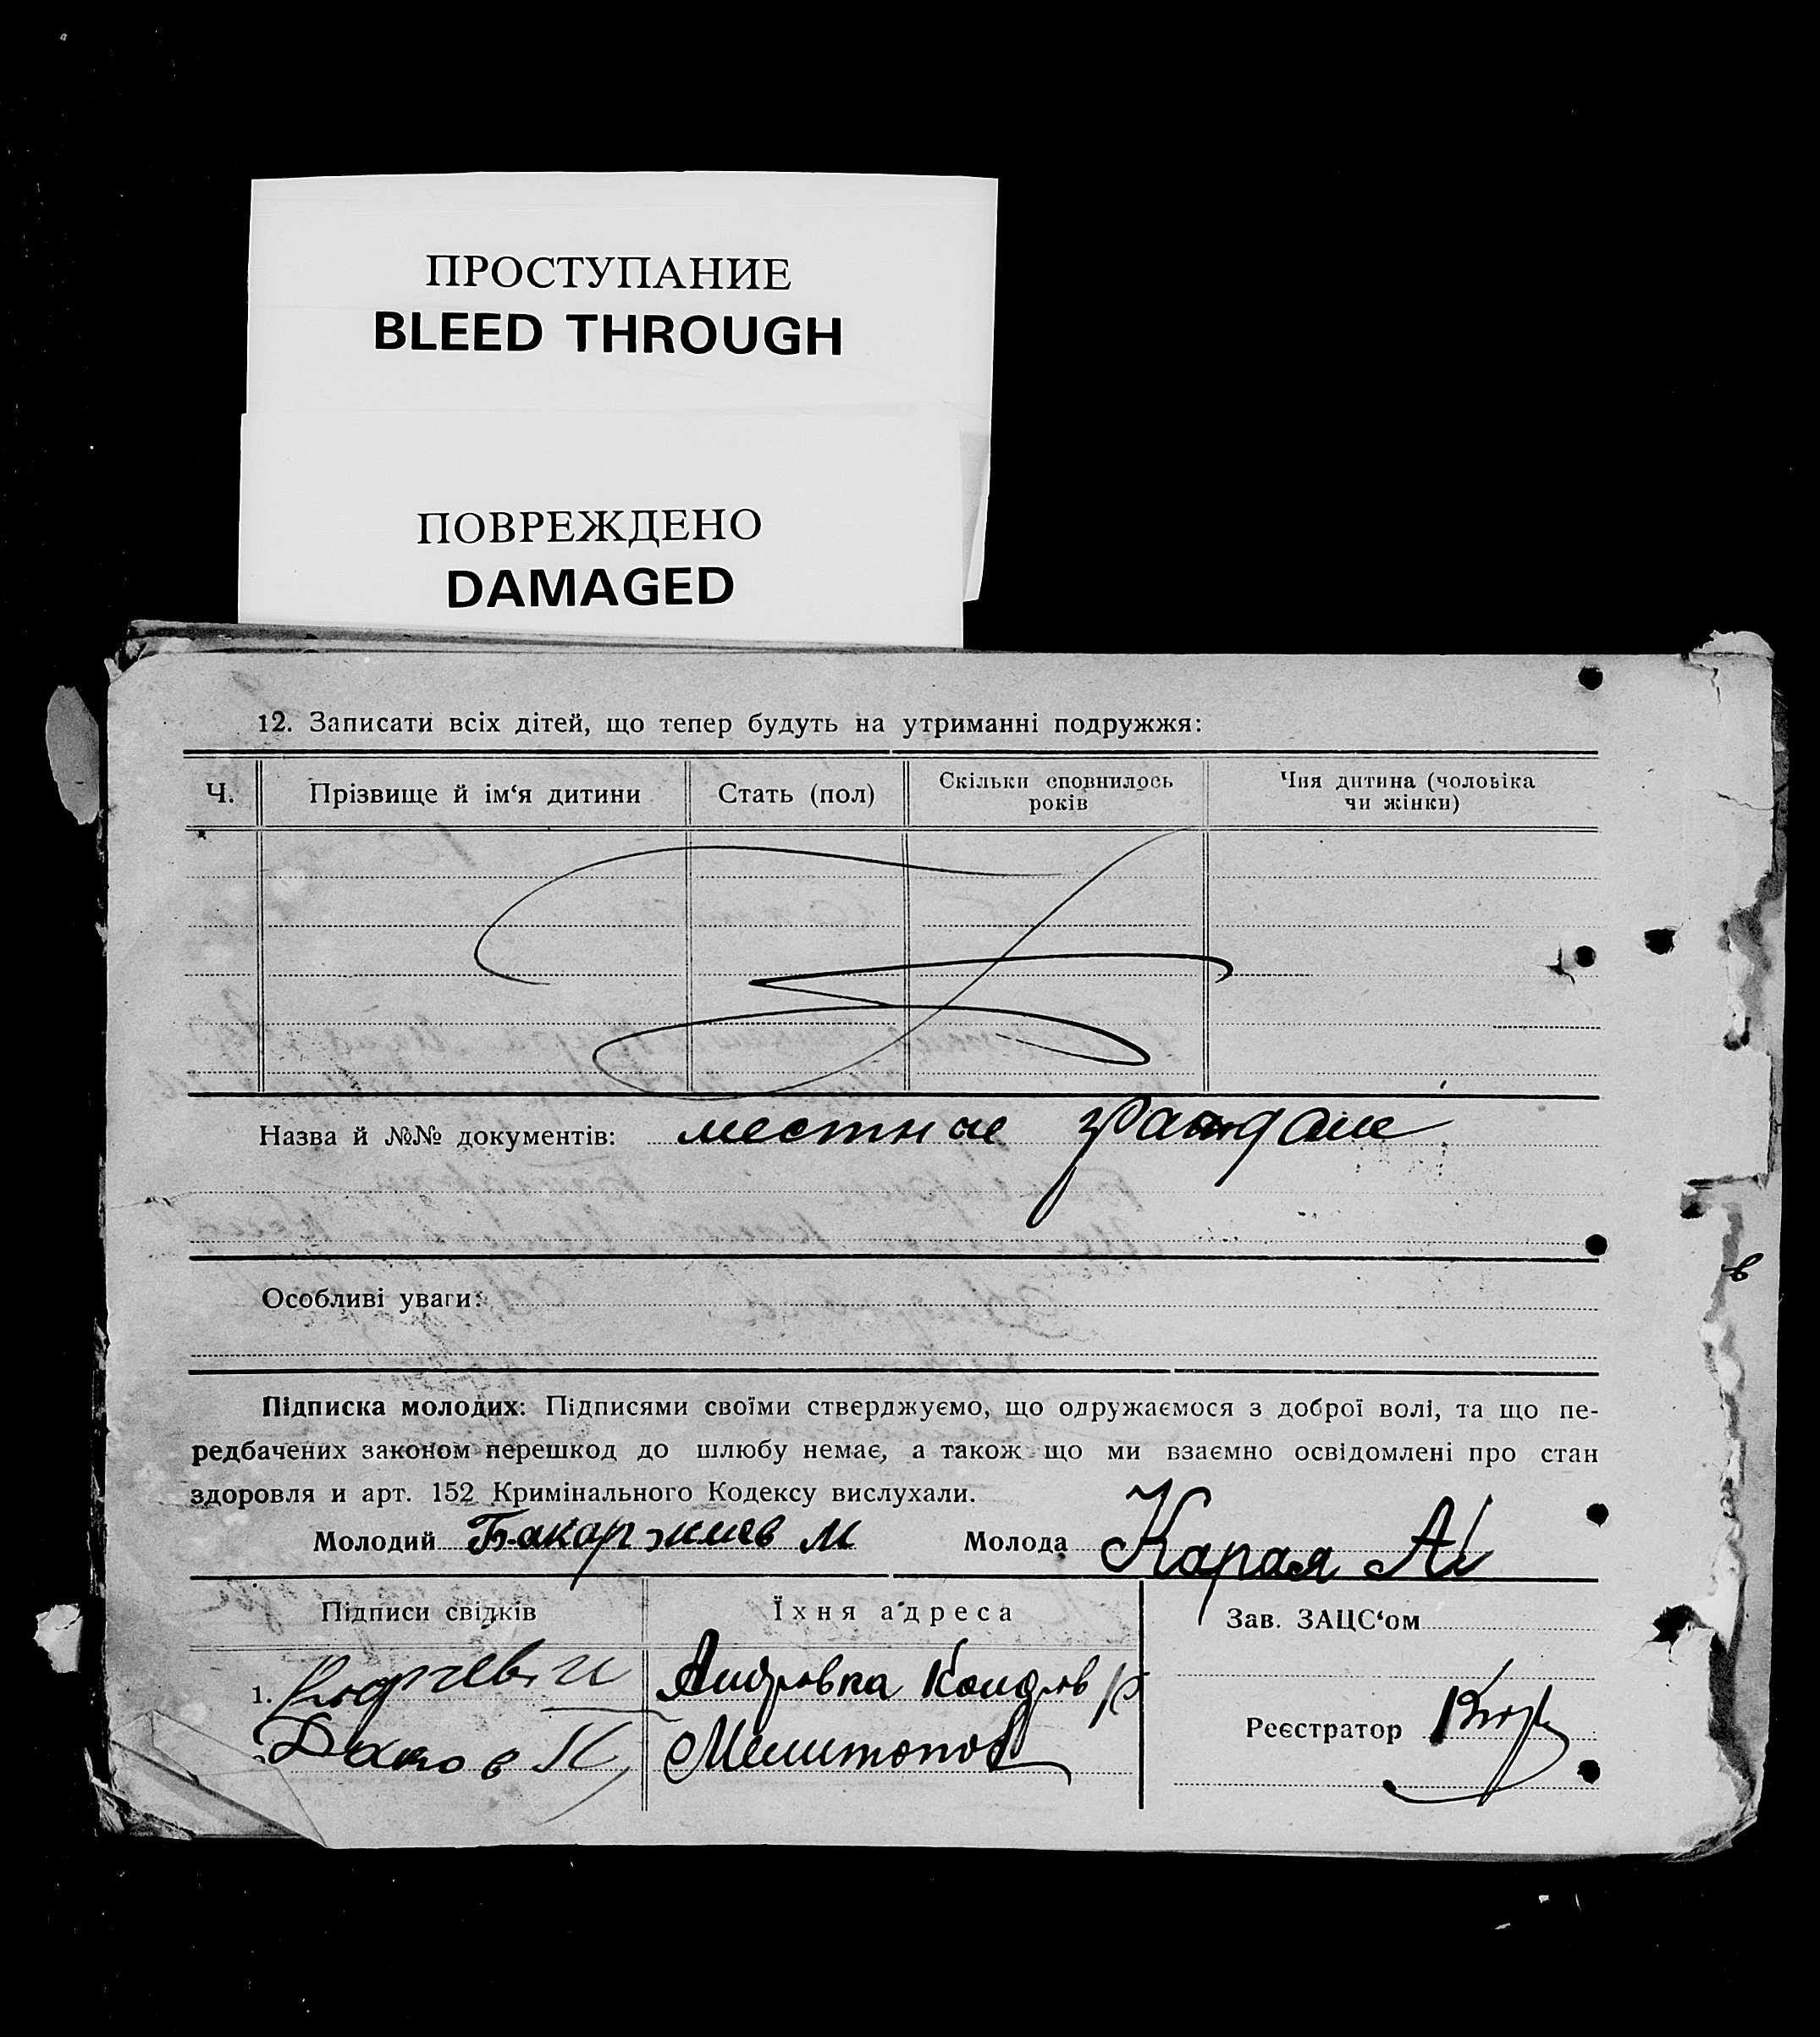 ПРОСТУПАНИЕ
BLEED THROUGH
ПОВРЕЖДЕНО
DAMAGED
12. Записати всіх дітей, що тепер будуть на утриманні подружжя:
Ч. Прізвище й ім‘я дитини Стать (пол) Скільки сповнилось років Чия дитина (чоловіка чи жінки)
Назва й №№ документів: местные граждане
Особливі уваги:
Підписка молодих: Підписями своїми стверджуємо, що одружаємося з доброї волі, та що пе-
редбачених законом перешкод до шлюбу немає, а також що ми взаємно освідомлені про стан
здоровля и арт. 152 Кримінального Кодексу вислухали.
Молодий Бакаржиев М Молода Карая А
Підписи свідків Їхня адреса Зав. ЗАЦС‘ом
1.
Реєстратор
Мелитопол